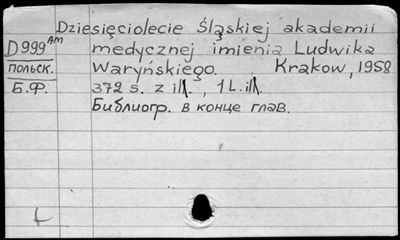 Dziesięciolecie Śląskiej akademii
D999 AM medycznej imienia Ludwika
польск. Waryńskiego. Krakow, 1958
Б.Ф. 372 s. z ill. , 1 L. ill.
Библиогр. в конце глав.